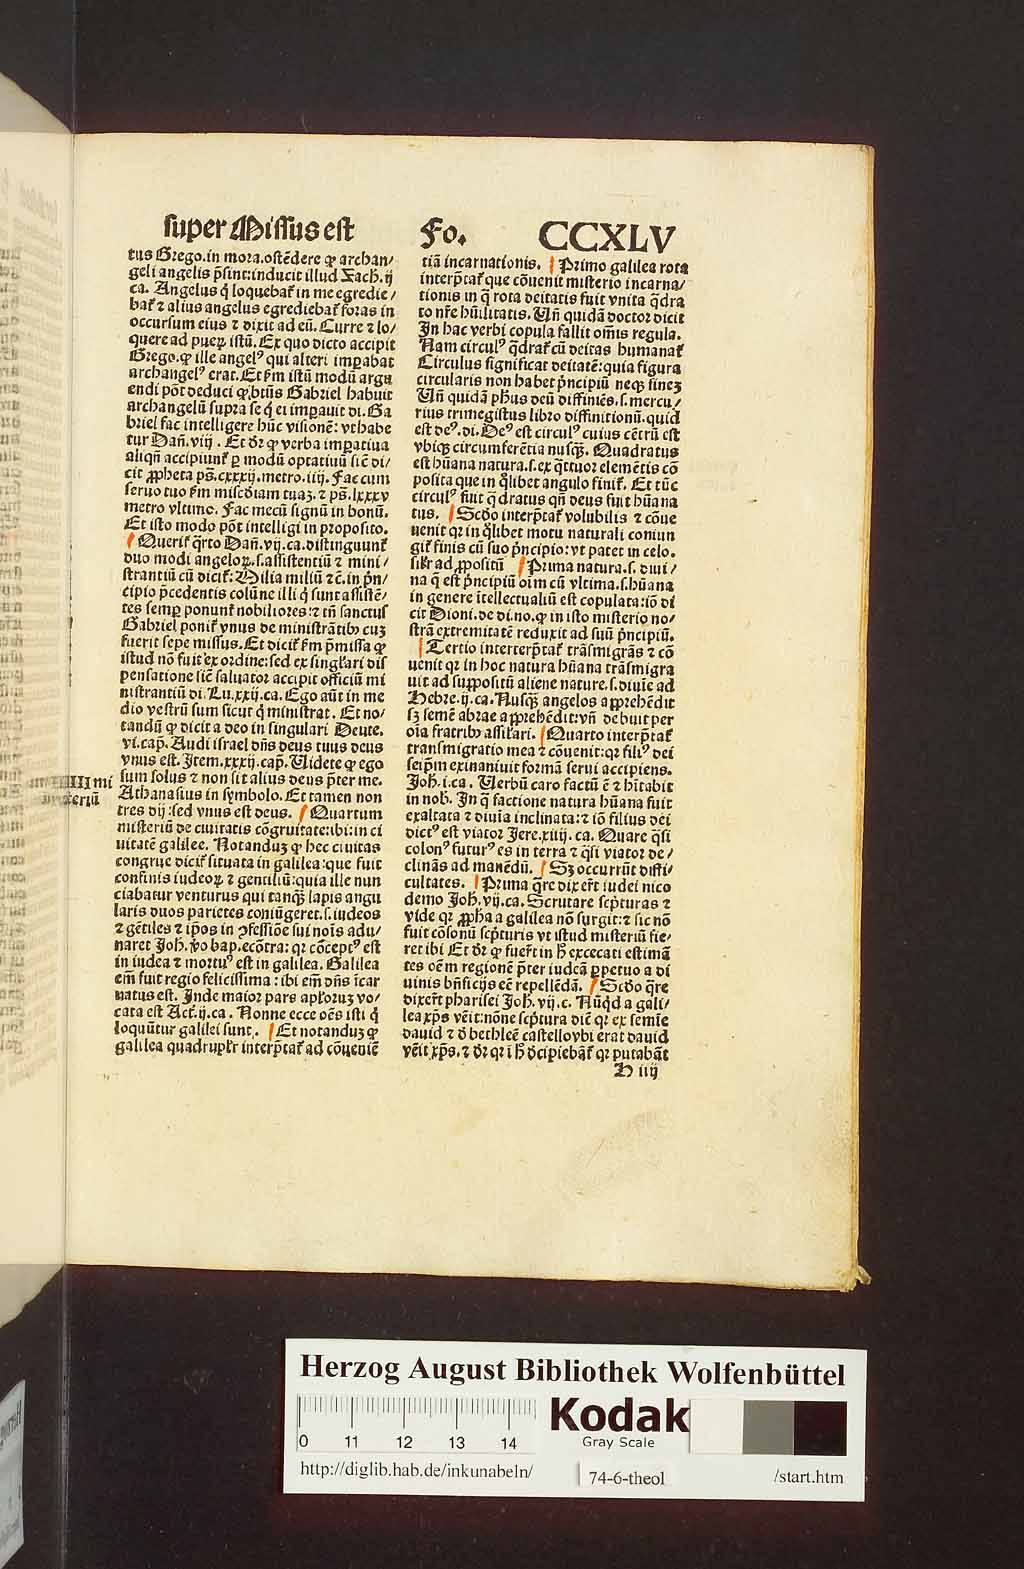 super Missus est Fo. CCXLV
tus Grego. in mora. ostēdere ꝙ archan/
geli angelis p̄sint: inducit illud Zach. ij
ca. Angelus q̇ loquebat᷑ in me egredie/
bat᷑ ⁊ alius angelus egrediebat᷑ foras in
occursum eius ⁊ dixit ad eū. Curre ⁊ lo/
quere ad pueꝝ istū. Ex quo dicto accipit
Grego. ꝙ ille angelꝰ qui alteri imꝑabat
archangelꝰ erat. Et ẜm istū modū argu
endi pōt deduci ꝙ btūs Gabriel habuit
archangelū supra se q̇ ei imꝑauit di. Ga
briel fac intelligere hūc visionē: vt habe
tur Dañ. viij. Et d̄r ꝙ verba imꝑatiua
aliqñ accipiunt᷑ ꝑ modū optatiuū sic̄ di/
cit ꝓpheta pš. cxxxij. metro. iiij. Fac cum
seruo tuo ẜm mīscd̄iam tuaꝫ. ⁊ pš. lxxxv
metro vltimo. Fac mecū signū in bonū.
Et isto modo pōt intelligi in proposito.
Querit᷑ q̄rto Dañ. vij. ca. distingunt᷑
duo modi angeloꝝ. s. assistentiū ⁊ mini/
strantiū cū dicit᷑: Milia miliū ⁊c̄. in p̄n/
cipio p̄cedentis colūne illi q̇ sunt assistē/
tes semꝑ ponunt᷑ nobiliores: ⁊ tñ sanctus
Gabriel ponit᷑ vnus de ministrātibꝰ cuꝫ
fuerit sepe missus. Et dicit᷑ ẜm p̄missa ꝙ
istud nō fuit ex ordine: sed ex singl̄ari dis
pensatione sic̄ saluator accipit officiū mi
nistrantiū di. Lu. xxij. ca. Ego aūt in me
dio vestrū sum sicut q̇ ministrat. Et no/
tandū ꝙ dicit a deo in singulari Deute.
vi. cap. Audi israel dñs deus tuus deus
vnus est. Item. xxxij. cap. Uidete ꝙ ego
sum solus ⁊ non sit alius deus p̄ter me.
Athanasius in symbolo. Et tamen non
tres dij: sed vnus est deus. Quartum
misteriū de ciuitatis cōgruitate: ibi: in ci
uitatē galilee. Notanduꝫ ꝙ hec ciuitas
congrue dicit᷑ situata in galilea: que fuit
confinis iudeoꝝ ⁊ gentiliū: quia ille nun
ciabatur venturus qui tanqꝫ lapis angu
laris duos parietes coniūgeret. s. iudeos
⁊ gētiles ⁊ ip̄os in ꝯfessiōe sui nois adu/
naret Joh. ꝟo bap. ecōtra: qꝛ cōceptꝰ est
in iudea ⁊ mortuꝰ est in galilea. Galilea
em̄ fuit regio felicissima: ibi em̄ dñs īcar
natus est. Inde maior pars apl̄oruꝫ vo/
cata est Act᷑. ij. ca. Nonne ecce oēs isti q̇
loquūtur galilei sunt. Et notanduꝫ ꝙ
galilea quadrupl̄r interp̄tat᷑ ad cōueniē
IIII mi
steriū
tiā incarnationis. Primo galilea rota
interp̄tat᷑ que cōuenit misterio incarna/
tionis in q̄ rota deitatis fuit vnita q̄dra
to nr̄e hūilitatis. Uñ quidā doctor dicit
In hac verbi copula fallit om̄is regula.
Nam circulꝰ q̄drat᷑ cū deitas humanat᷑
Circulus significat deitatē: quia figura
circularis non habet p̄ncipiū neqꝫ fineꝫ
Uñ quidā ph̄us deū diffiniēs. s. mercu/
rius trimegistus libro diffinitionū. quid
est deꝰ. di. Deꝰ est circulꝰ cuius cētrū est
vbiqꝫ circumferētia nusqꝫ. Quadratus
est hūana natura. s. ex q̄ttuor elemētis cō
posita que in q̄libet angulo finit᷑. Et tūc
circulꝰ fuit q̄dratus qñ deus fuit hūana
tus. Scd̄o interp̄tat᷑ volubilis ⁊ cōue
uenit qꝛ in q̄libet motu naturali coniun
git᷑ finis cū suo p̄ncipio: vt patet in celo.
Sil᷑r ad ꝓpositū Prima natura. s. diui/
na q̄ est p̄ncipiū oīm cū vltima. s. hūana
in genere ītellectualiū est copulata: iō di
cit Dioni. de di. no. ꝙ in isto misterio no/
strā extremitatē reduxit ad suū p̄ncipiū.
Tertio interterp̄tat᷑ trāsmigrās ⁊ cō
uenit qꝛ in hoc natura hūana trāsmigra
uit ad suppositū aliene nature. s. diuīe ad
Hebre. ij. ca. Nusqꝫ angelos apprehēdit
sꝫ semē abrae apprehēdit: vñ debuit per
oīa fratribꝰ assil᷑ari. Quarto interp̄tat᷑
transmigratio mea ⁊ cōuenit: qꝛ filiꝰ dei
seip̄m exinaniuit formā serui accipiens.
Joh. i. ca. Uerbū caro factū ē ⁊ hītabit
in nob̄. In q̄ factione natura hūana fuit
exaltata ⁊ diuīa inclinata: ⁊ iō filius dei
dictꝰ est viator Jere. xiiij. ca. Quare q̄si
colonꝰ futurꝰ es in terra ⁊ q̄si viator de/
clinās ad manēdū. Sꝫ occurrūt diffi/
cultates. Prima q̄re dixer̄t iudei nico
demo Joh. vij. ca. Scrutare sc̄pturas ⁊
vide qꝛ ꝓpha a galilea nō surgit: ⁊ sic nō
fuit cōsonū sc̄pturis vt istud misteriū fie/
ret ibi Et d̄r ꝙ fuer̄t in h̄ excecati estimā
tes oēm regionē p̄ter iudeā ꝑpetuo a di
uinis bn̄ficijs eē repellēdā. Scd̄o q̄re
dixer̄t pharisei Joh. vij. c. Nūqd̄ a gali/
lea xp̄s vēit: nōne sc̄ptura diē qꝛ ex semīe
dauid ⁊ d̄ bethleē castello vbi erat dauid
vēit xp̄s. ⁊ d̄r qꝛ ī h̄ d̄cipiebāt᷑ qꝛ putabāt
H iiij
Herzog August Bibliothek Wolfenbüttel
0 11 12 13 14
Kodak
Gray Scale
http://diglib.hab.de/inkunabeln/ 74-6-theol /start.htm